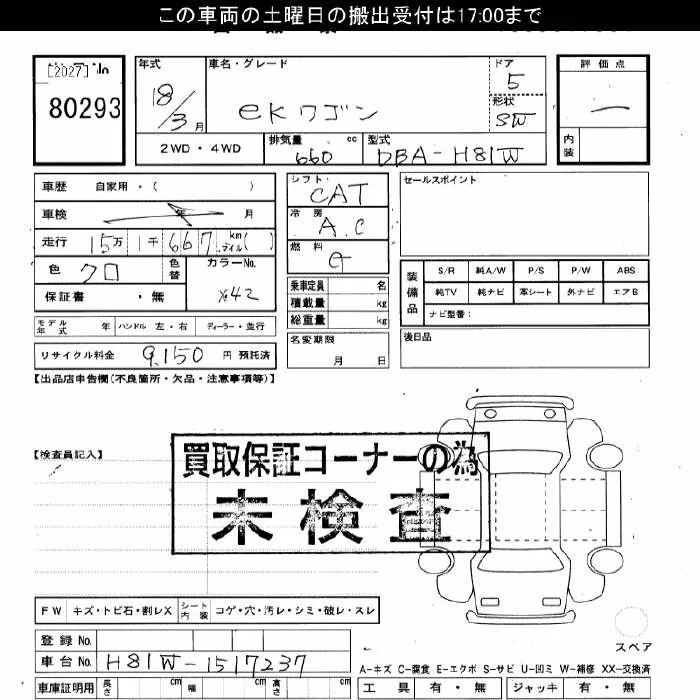 この車両の土曜日の搬出受付は17:00まで
[2027] No
80293
年式
18/3 月
車名・グレード
eKワゴン
ドア
5
形状
SW
評価点
—
内装
2WD・4WD
排気量 660 cc
型式 DBA-H81W
車歴 自家用・( )
車検 年 月
走行 15万 1千 667 km マイル( )
色 クロ
色替
カラーNo.
X42
保証書 ・無
モデル年式 年 ハンドル 左・右 ディーラー・並行
リサイクル料金 9,150 円 預託済
シフト
CAT
冷房
A.C
燃料
G
乗車定員 名
積載量 kg
総重量 kg
名変期限
月 日
セールスポイント
装備品
S/R 純A/W P/S P/W ABS
純TV 純ナビ 革シート 外ナビ エアB
ナビ型番:
後日品
【出品店申告欄(不良箇所・欠品・注意事項等)】
【検査員記入】
買取保証コーナーの為
未検査
FW キズ・トビ石・割レX シート内装 コゲ・穴・汚レ・シミ・破レ・スレ
登録 No.
車台 No. H81W-1517237
車庫証明用 長さ cm 幅 cm 高さ cm
スペア
A-キズ C-腐食 E-エクボ S-サビ U-凹ミ W-補修 XX-交換済
工具 有・無 ジャッキ 有・無